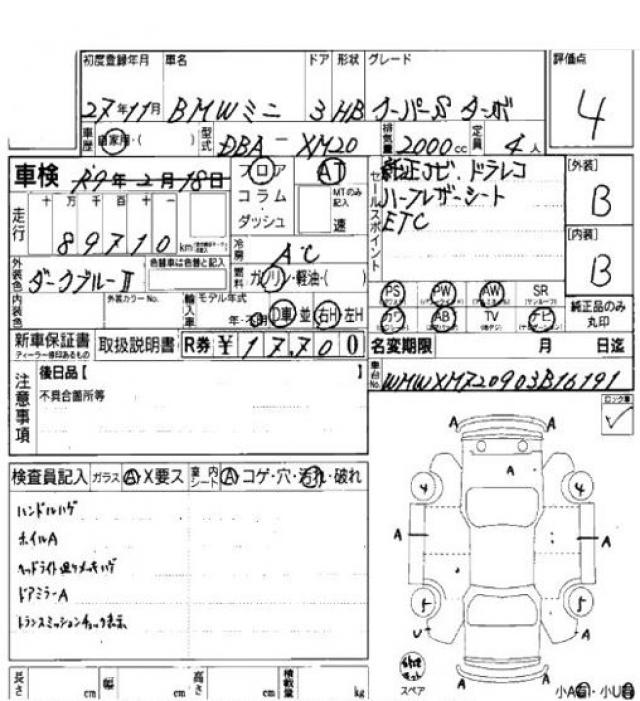 初度登録年月 車名 ドア 形状 グレード 評価点
27年11月 BMWミニ 3 HB クーパーS ターボ 4
車歴 自家用・( ) 型式 DBA-XM20 排気量 2000cc 定員 4人
車検 R9年2月18日 フロア AT セールスポイント 純正ナビ、ドラレコ [外装]
コラム MTのみ記入 ハーフレザーシート B
走行 十万千百十一 ダッシュ 速 ETC
89710 km 冷房 AC [内装]
外装色 ダークブルーII 色替車は色替と記入 燃料 ガソリン・軽油・( ) B
内装色 外装カラーNo. 輸入車 モデル年式 PS PW AW SR
年・不明 D車 並 右H 左H カワ AB TV ナビ 純正品のみ丸印
新車保証書 取扱説明書 R券 ¥17,700 名変期限 月 日迄
ディーラー捺印あるもの
注意事項 後日品【 】 車台No. WMWXM720903B16191
不具合箇所等
検査員記入 ガラス A・X要ス 室内シート A コゲ・穴・汚れ・破れ
ハンドルハゲ
ホイルA
ドアミラーA
トランスミッションチェック表示
A A
A
4 4
A A
5 5
U A
A A
スペア
長さ cm 幅 cm 高さ cm 積載量 kg